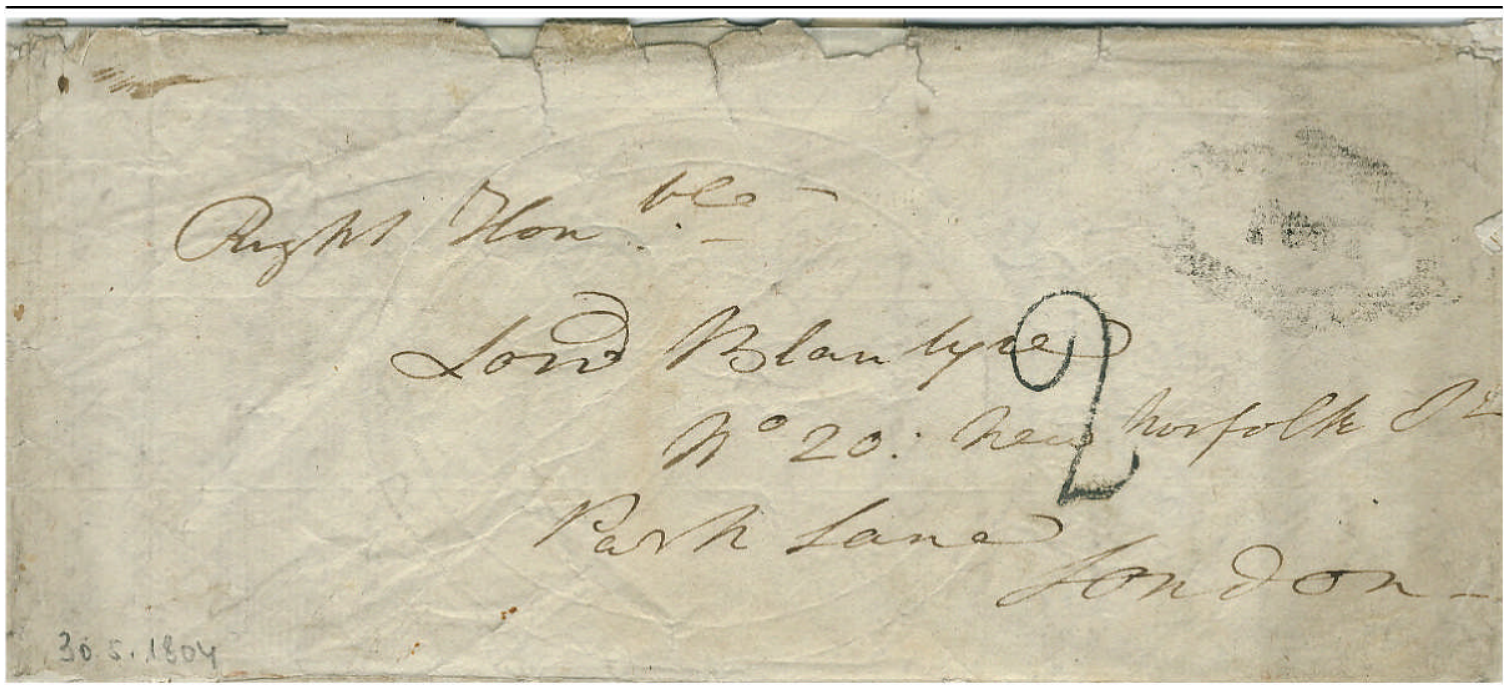 Right Hon.ble
Lord Blantyre
2
No 20: New Norfolk St
Park Lane
London
30.5.1804